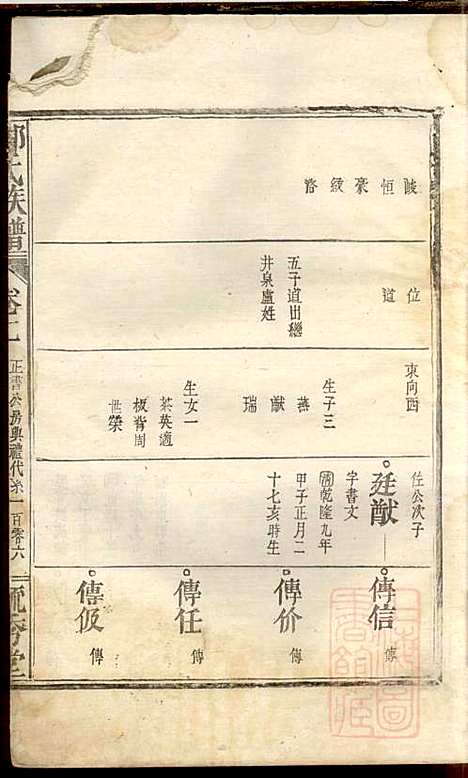 陵恒豪綬
位
道
五子道出繼
井泉盧姓
東向酉
生子三
燕
猷
瑞
生女一
茶英適
板背周
世榮
任公次子
廷猷
字書文
清乾隆九年
甲子正月二
十七亥時生
傳信
傳
傳价
傳
傳任
傳
傳伋
傳
氏族譜
卷二
正書公房興禮代系
一百零六
堂